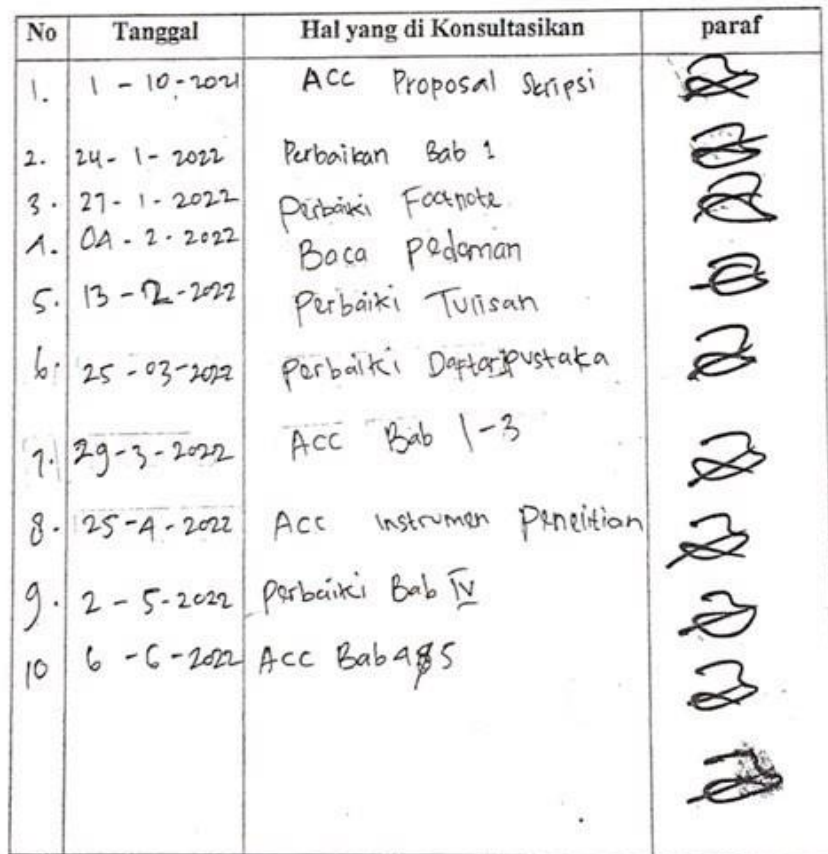 No Tanggal Hal yang di Konsultasikan paraf
1. 1 - 10 - 2021 ACC Proposal Skripsi
2. 24 - 1 - 2022 Perbaikan Bab 1
3. 27 - 1 - 2022 Perbaiki Footnote
4. 04 - 2 - 2022 Baca pedoman
5. 13 - 2 - 2022 Perbaiki Tulisan
6. 25 - 03 - 2022 perbaiki Daftar pustaka
7. 29 - 3 - 2022 ACC Bab 1 - 3
8. 25 - 4 - 2022 Acc instrumen penelitian
9. 2 - 5 - 2022 perbaiki Bab IV
10 6 - 6 - 2022 ACC Bab 4 & 5